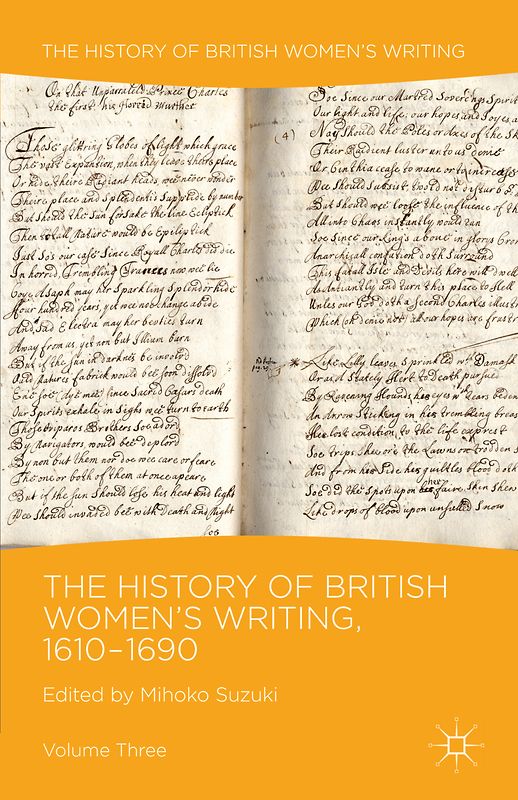 THE HISTORY OF BRITISH WOMEN'S WRITING
On that Unparraleld Prince Charles
the first his Horrid Murther
Those glittring Globes of light which grace
The vast expantion, when they leave their place
Or hide their Radiant heads, wee never wonder
Theire place and splendentis supplide by number
But should the Sun forsake the line Ecliptick
Then would Nature would be Epileptick
Just so's our case since Royall Charles did die
In horred, Trembling Trances now wee lie
Coye Asaph may her Sparkling Splendor hide
Four hundred years, yet wee no change abide
And Sad Electra may her besties turn
Away from us, yet non but Illium barn
But if the Sun in darknes be involvd
Old Natures fabrick would bee soon dissolvd
Ent soe dyt mee since Sacred Cæsars death
Our Spirits exhale in Sighs wee turn to earth
Those Brothers Soe adord
By Navigators, would bee deplord
By non but them nor doe wee care or feare
The one or both of them at once apeare
But if the Sun should lose his heat and light
Wee should invaded bee with Death and Night
Soe
(4)
Soe Since our Martred Soverengs Spirit
Our light and life, our hopes and Joyes
Nay should the Poles or Axes of the Sk
Their Radient luster unto us denie
Or Cinthia cease to wane or to increase
Wee Should Subsist two'd not disturb o
But should wee loose the influence of th
All into Chaos instantly would run
Soe since our King's above in glory Crow
Anarchicall confution doth Surround
This fatall Isle and Devils here will dwell
As Antiently and turn this place to Hell
Unles our God doth a Second Charles illustr
Which if denie us all our hopes are frustr
Like Lilly leaves, Sprinkled wth Damask
Or as a Stately Hert to Death pursued
By Raveing Hounds her eyes with tears beden
An Arrow Sticking in her trembling breas
Her lost condition to the life exprest
Soe trips shee or'e the Lawns on trodden
And from her Side her guiltles blood doth
Soe did the Spots upon her faire Skin Shew
Like drops of blood upon unsulled Snow
THE HISTORY OF BRITISH
WOMEN'S WRITING,
1610–1690
Edited by Mihoko Suzuki
Volume Three